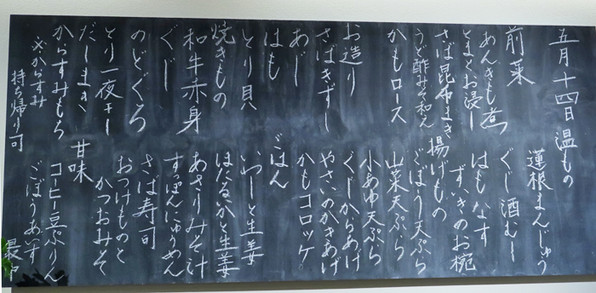 五月十四日
前菜
あんきも煮
とまとお浸し
さば昆布まき
うど酢みそ和え
かもロース
お造り
さばきずし
あじ
はも
とり貝
焼きもの
和牛赤身
ぐじ
のどぐろ
とり一夜干し
だしまき
からすみもち
※からすみ
持ち帰り可
温もの
蓮根まんじゅう
ぐじ酒むし
はもなす
ずいきのお椀
揚げもの
ごぼう天ぷら
山菜天ぷら
小あゆ天ぷら
ぐじからあげ
やさいのかきあげ
かもコロッケ
ごはん
いわしと生姜
ほたるいかと生姜
あさりみそ汁
すぽんにゅうめん
さば寿司
おつけものと
かつおみそ
甘味
コーヒー豆ぷりん
ごぼうあいす
最中